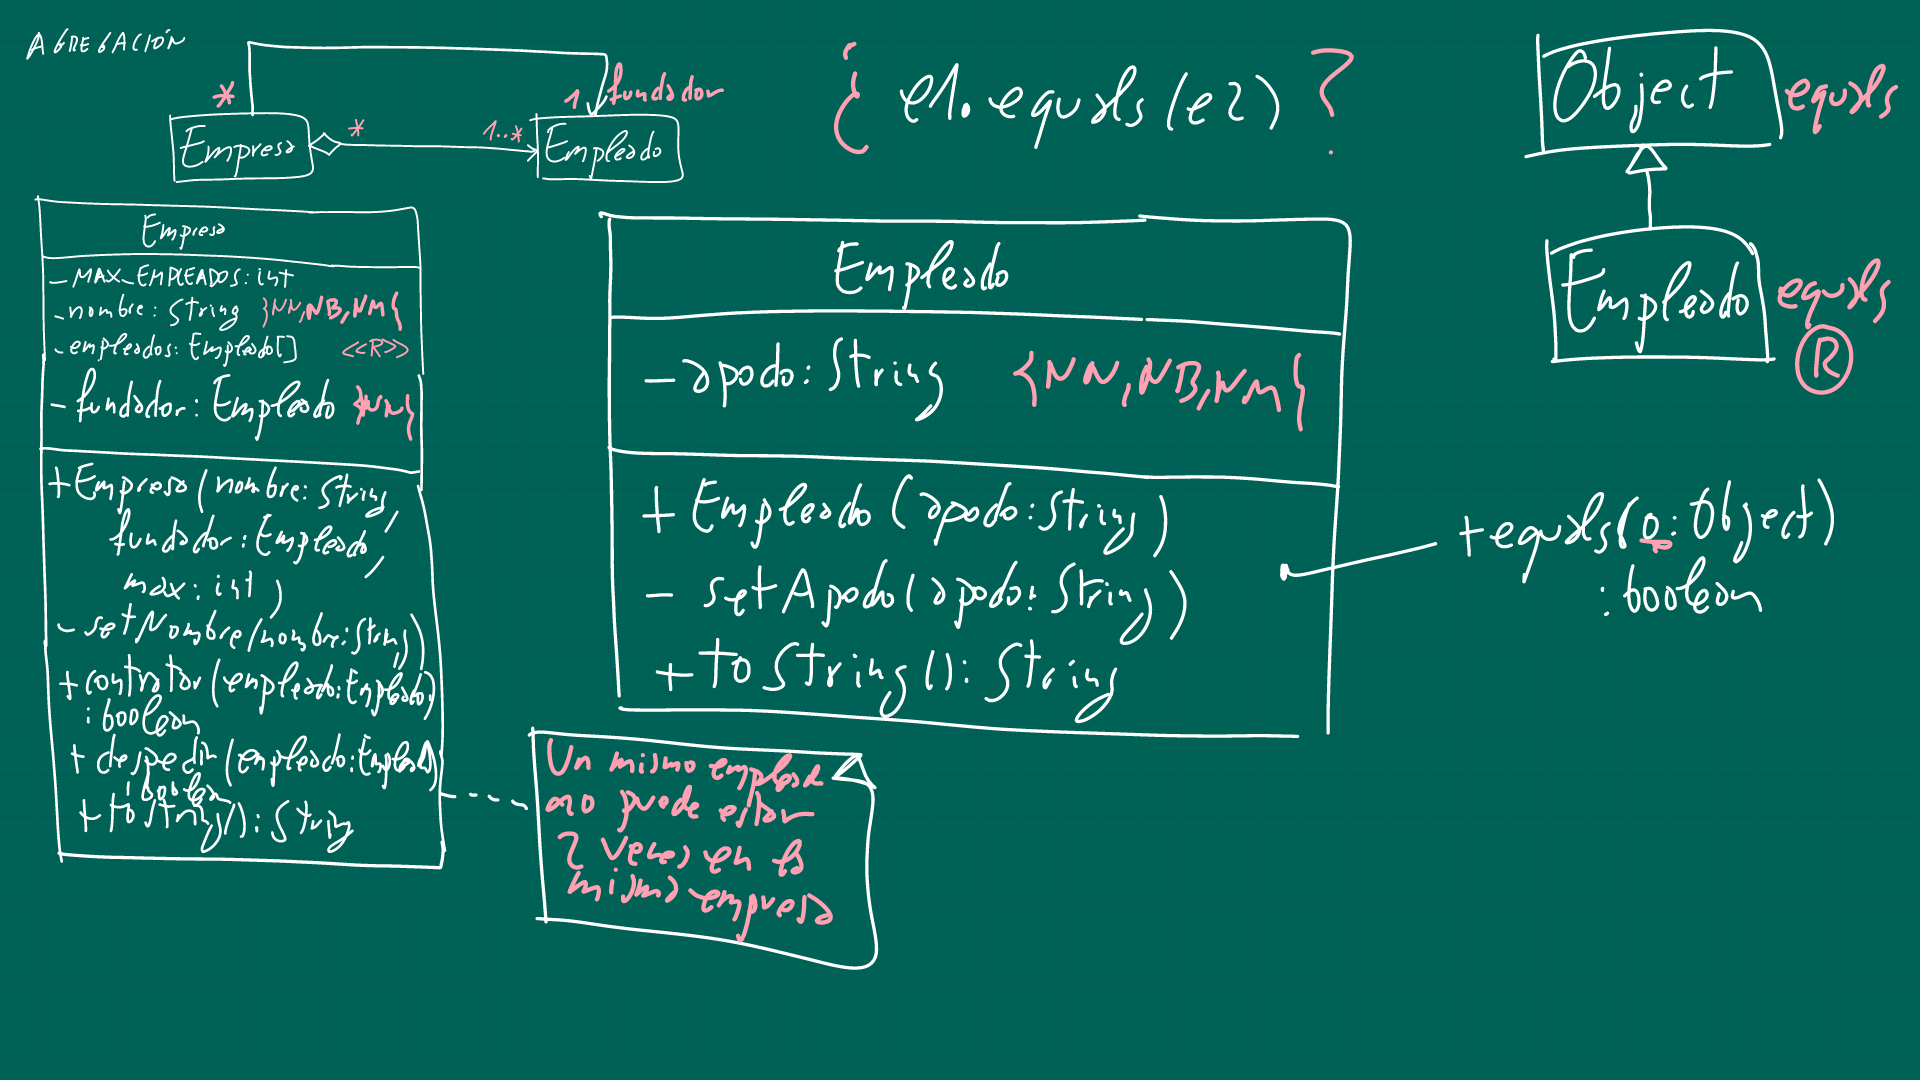 AGREGACIÓN
* 1 fundador
Empresa * 1..* Empleado
¿ e1.equals(e2) ?
Object equals
Empleado equals
R
Empresa
- MAX_EMPLEADOS: int
- nombre: String }NN,NB,NM{
- empleados: Empleado[] <<R>>
- fundador: Empleado }NN{
+ Empresa(nombre: String,
fundador: Empleado,
max: int)
- setNombre(nombre: String)
+ contratar(empleado: Empleado)
: boolean
+ despedir(empleado: Empleado)
: boolean
+ toString(): String
Empleado
- apodo: String {NN,NB,NM}
+ Empleado(apodo: String)
- setApodo(apodo: String)
+ toString(): String
+ equals(o: Object)
: boolean
Un mismo empleado
no puede estar
2 veces en la
misma empresa